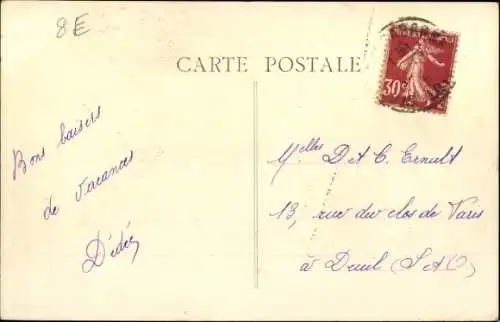 8E
CARTE POSTALE
30c
Bons baisers
de vacances
Dédée
Melles D et C. Ernult
13, rue du clos de Paris
à Deuil (S. et O)